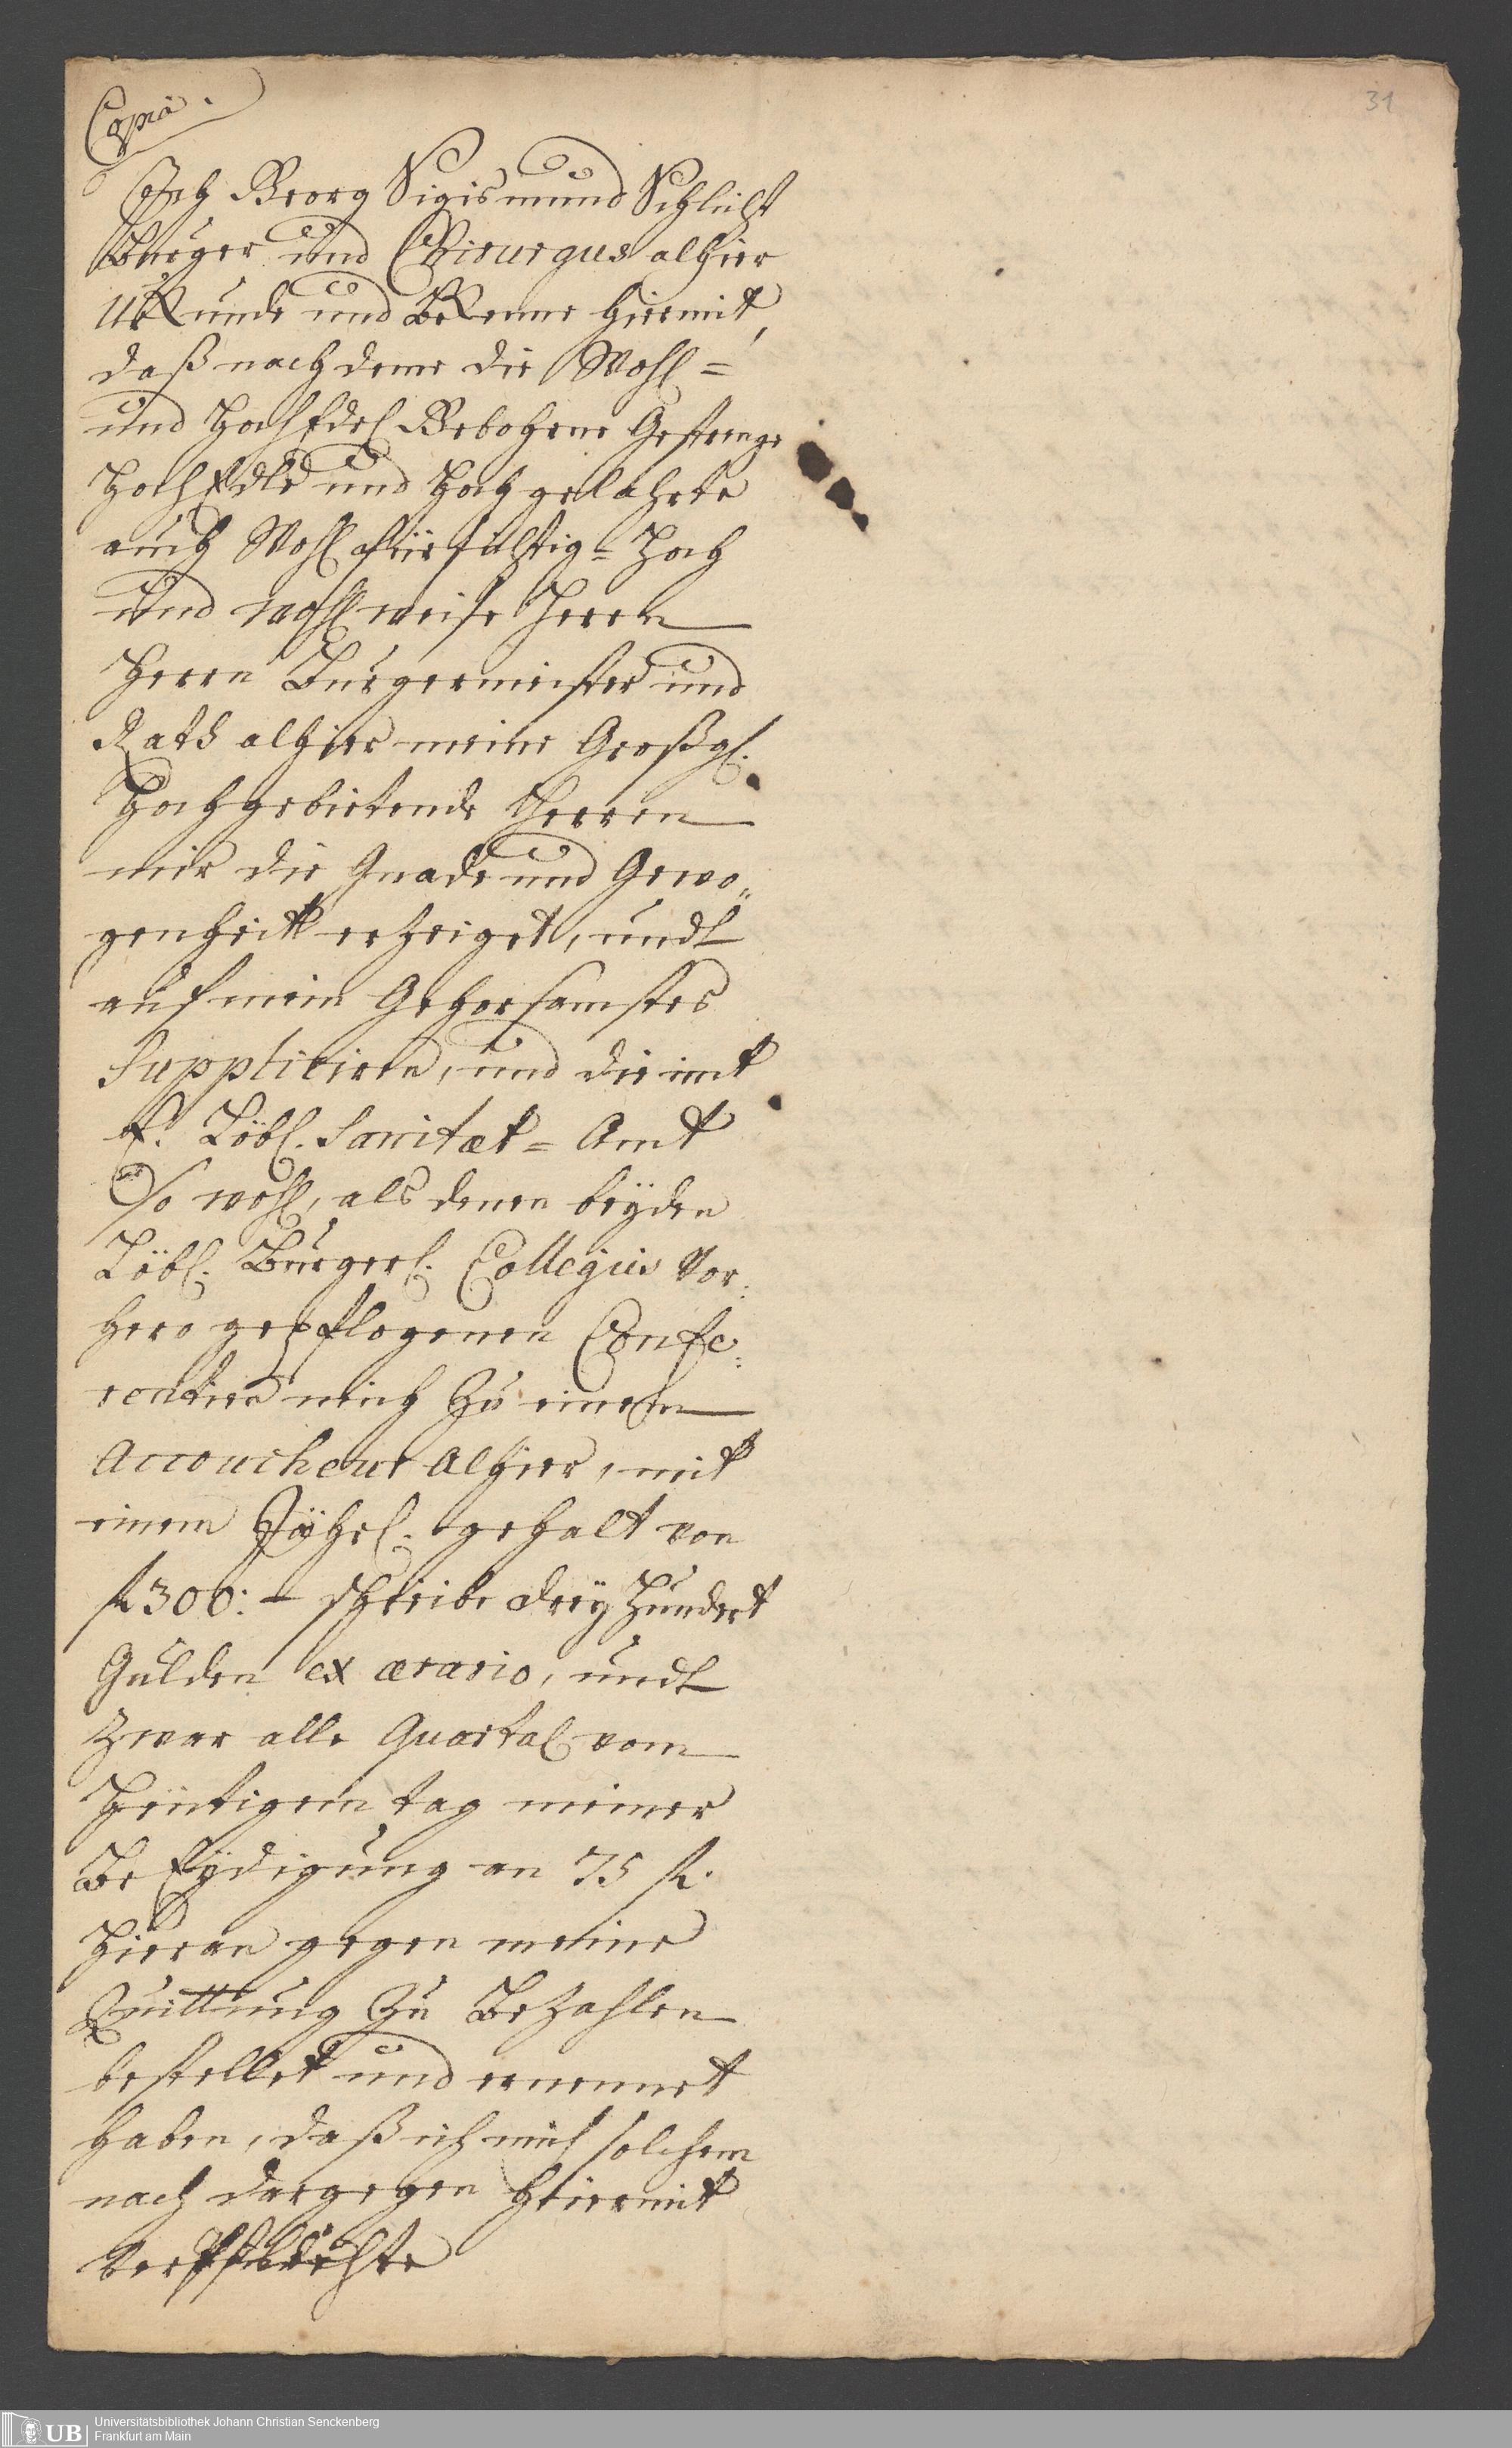 Copia.
31
Ich Georg Sigismund Schlicht
Burger und Chirurgus alhier
Uhrkunde und Bekenne hiermit,
daß nach deme die Wohl=
und HochEdel Gebohrne Gestrenge
HochEdle und Hoch gelahrte
auch Wohl fürsichtig= Hoch
und wohl weise Herren
Herrn Burgermeister und
Rath alhier meine Großgl.
Hochgebietende Herren
mir die Gnade und Gewo„
genheit erzeiget, undt
auf mein Gehorsamstes
Suppliciren, und die mit
E. Löbl. Sanitæt=Amt
so wohl, als denen beÿden
Löbl. Bürgerl. Collegiis vor:
hero gepflogenen Confe:
rentien mich zu einem
Accoucheur alhier, mit
einem Jährl. gehalt von
fl 300:— schreibe dreÿ Hundert
Gulden ex ærario, undt
zwar alle Quartal vom
Heutigem tag meiner
BeEÿdigung an 75 fl.
hieran gegen meine
Quittung zu Bezahlen
bestellet und ernennet
haben, daß ich mich solchem
nach dargegen hiermit
verpflichte
UB
Universitätsbibliothek Johann Christian Senckenberg
Frankfurt am Main